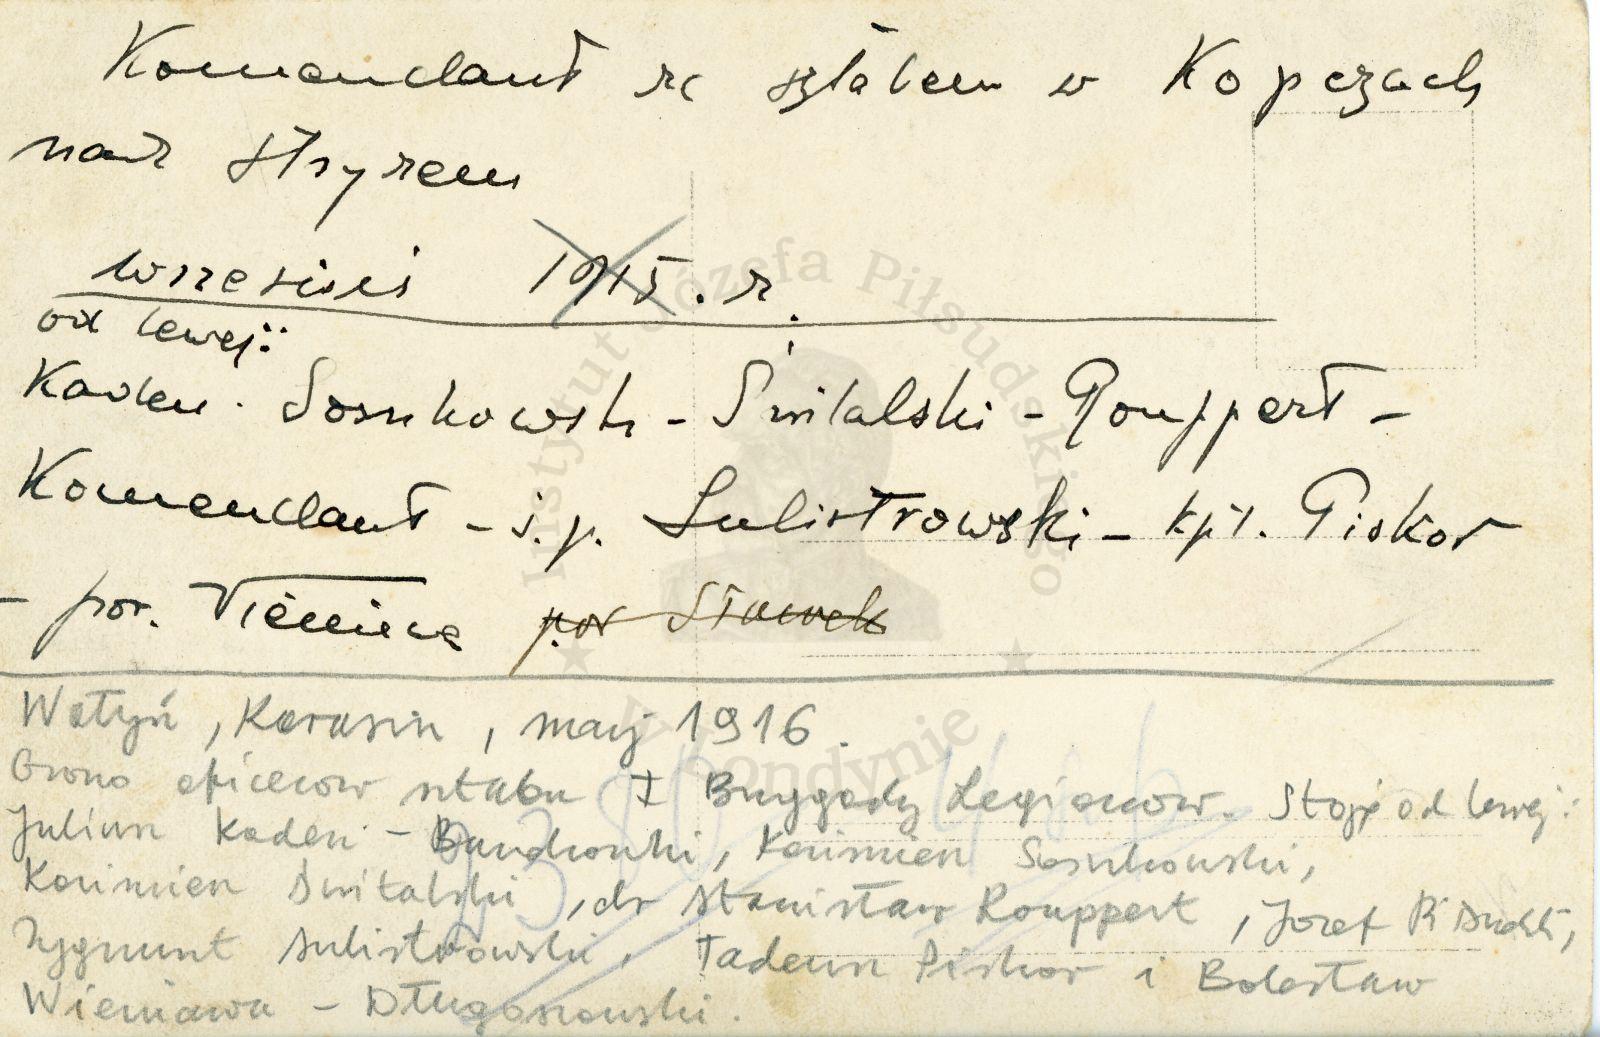 Komendant ze sztabem w Kopczach
nad Styrem
wrzesień 1915. r.
od lewej:
Kaden - Sosnkowski - Świtalski - Rouppert -
Komendant - ś.p. Sulistrowski - kpt. Piskor
- por. Wieniawa por Sławek
Wołyń, Karasin, maj 1916.
Grono oficerow sztabu I Brygady Legionow. Stoją od lewej:
Juliusz Kaden - Bandrowski, Kazimierz Sosnkowski,
Kazimierz Świtalski, dr Stanisław Rouppert, Jozef Piłsudski,
Zygmunt Sulistrowski, Tadeusz Piskor i Bolesław
Wieniawa - Długoszowski.
Instytut Józefa Piłsudskiego
w Londynie